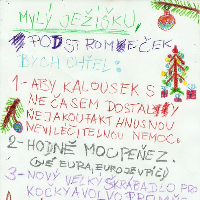 MYLÝ JEŽÍŠKU,
POD STROMEČEK
BYCH CHTĚL:
1 - ABY KALOUSEK S
NEČASEM DOSTALI
NĚJAKOU FAKT HNUSNOU
NEVILÉČITELNOU NEMOC.
2 - HODNĚ MOC PENĚZ.
(NÉ EURA, EURO JE VPIČI)
3 - NOVÝ VELKÝ ŠKRABADLO PRO
KOČKY A VOLVO PRO MĚ